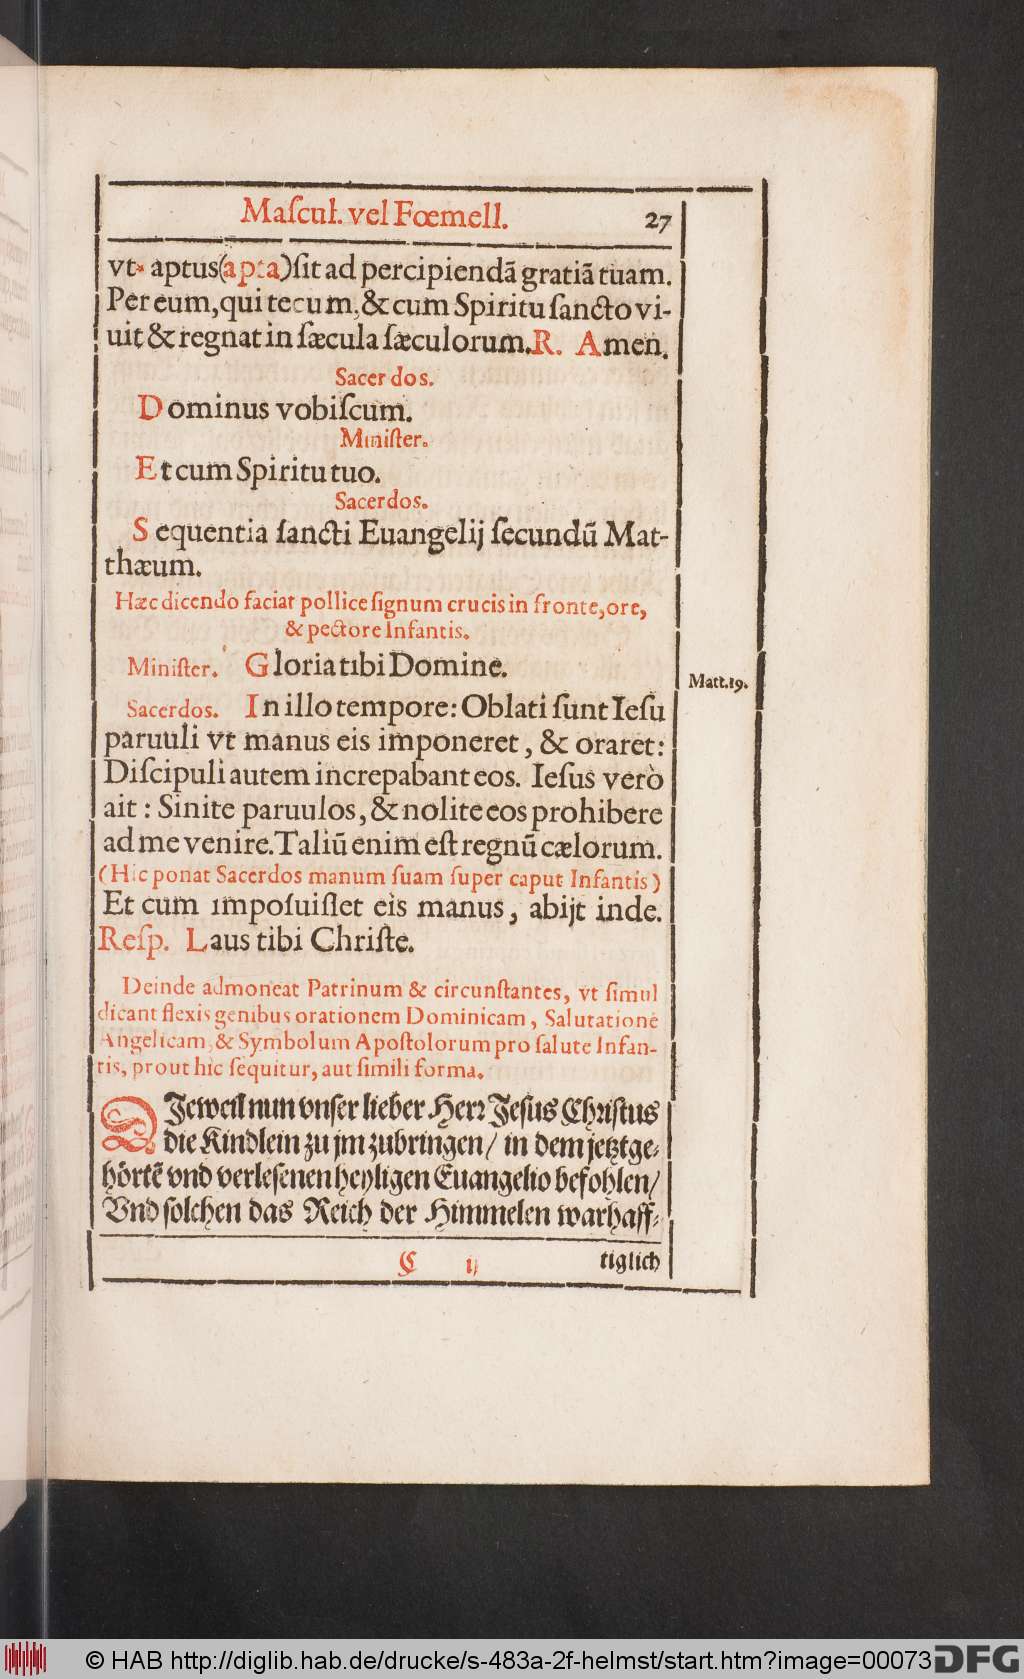 Maſcul. vel Fœmell. 27
vt aptus(apta)ſit ad percipiendã gratiã tuam.
Per eum, qui tecum, & cum Spiritu ſancto vi-
uit & regnat in ſæcula ſæculorum. R. Amen.
Sacerdos.
Dominus vobiſcum.
Miniſter.
Et cum Spiritu tuo.
Sacerdos.
Sequentia ſancti Euangelij ſecundũ Mat-
thæum.
Hæc dicendo faciat pollice ſignum crucis in fronte, ore,
& pectore Infantis.
Miniſter. Gloria tibi Domine.
Matt. 19.
Sacerdos. In illo tempore: Oblati ſunt Ieſu
paruuli vt manus eis imponeret, & oraret:
Diſcipuli autem increpabant eos. Ieſus verò
ait: Sinite paruulos, & nolite eos prohibere
ad me venire. Taliũ enim eſt regnũ cælorum.
(Hic ponat Sacerdos manum ſuam ſuper caput Infantis)
Et cum impoſuiſſet eis manus, abijt inde.
Reſp. Laus tibi Chriſte.
Deinde admoneat Patrinum & circunſtantes, vt ſimul
dicant flexis genibus orationem Dominicam, Salutationẽ
Angelicam, & Symbolum Apoſtolorum pro ſalute Infan-
tis, prout hic ſequitur, aut ſimili forma.
DJeweil nun vnſer lieber Herr Jeſus Chriſtus
die Kindlein zu jm zubringen / in dem jetztge-
hörtẽ vnd verleſenen heyligen Euangelio befohlen /
Vnd ſolchen das Reich der Himmelen warhaff-
C ij tiglich
© HAB http://diglib.hab.de/drucke/s-483a-2f-helmst/start.htm?image=00073 DFG